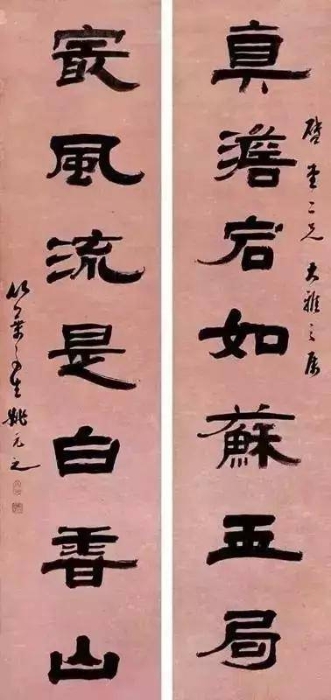 堂二兄大雅之屬
真澹宕如蘇玉局
冣風流是白香山
竹葉亭生姚元之